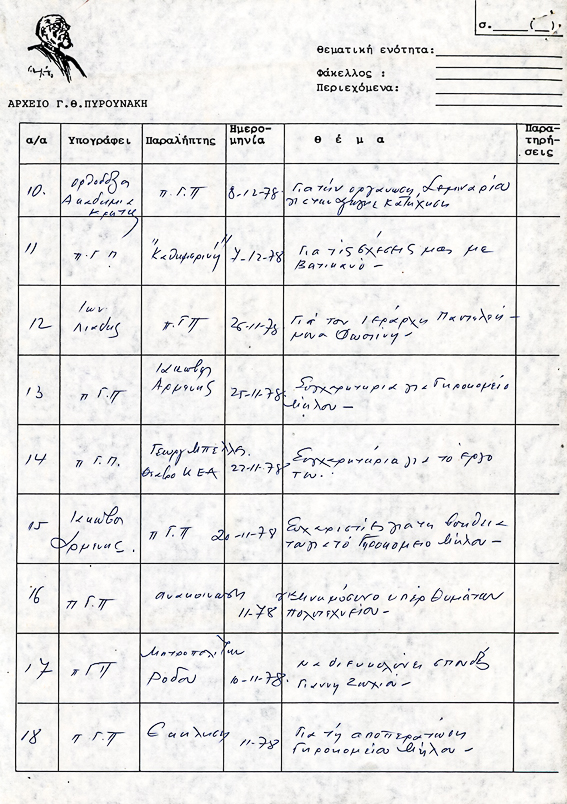 σ.____(__).
Θεματική ενότητα:
Φάκελλος :
Περιεχόμενα:
ΑΡΧΕΙΟ Γ.Θ.ΠΥΡΟΥΝΑΚΗ
α/α Υπογράφει Παραλήπτης Ημερο-μηνία θ έ μ α Παρα-τηρή-σεις
10. Ορθοδοξη
Ακαδημια
Κρητης
π.Γ.Π 8-12-78 Για την οργανωση Σεμιναρίου
για κατήχηση
11 π.Γ.Π "Καθημερινή" 7-12-78 Για τίς σχέσεις μας με
Βατικανό -
12 Ιων.
π.ΓΠ 26-11-78 Γιά τον Ιεράρχη Παντελεή-
μονα Φωστίνη -
13 π Γ.Π Ιακωβο
25-11-78 Συγχαρητηρια για Γηροκομείο
Μήλου -
14 π Γ.Π. Γεωργ Μπέλλη.
Θεατρο ΚΕΑ 22-11-78 Συγχαρητήρια για το έργο
του.
15 Ιακωβος
π Γ.Π 20-11-78 Ευχαριστίες για τη βοήθεια
του για τό Γηροκομειο Μήλου -
16 π Γ.Π ανακοινωση 11-78 για μνημόσυνο υπέρ θυμάτων
πολυτεχνείου -
17 π ΓΠ Μητροπολίτην
Ροδου 10-11-78. να διευκολύνει
Γιαννη
18 π Γ.Π Εκκληση 11-78 Για τή αποπεράτωση
Γηροκομείου Μήλου -